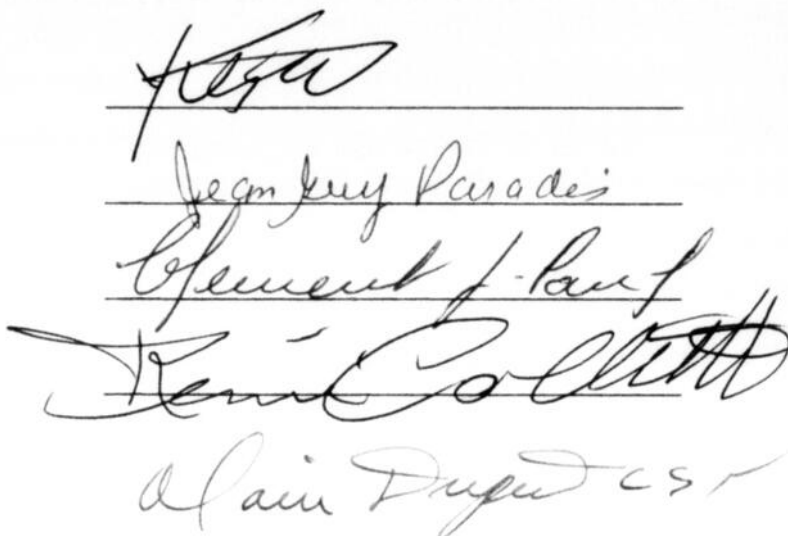 Jean Guy Paradis
Clement J-Paul
René Collette
Alain Dugas CSN